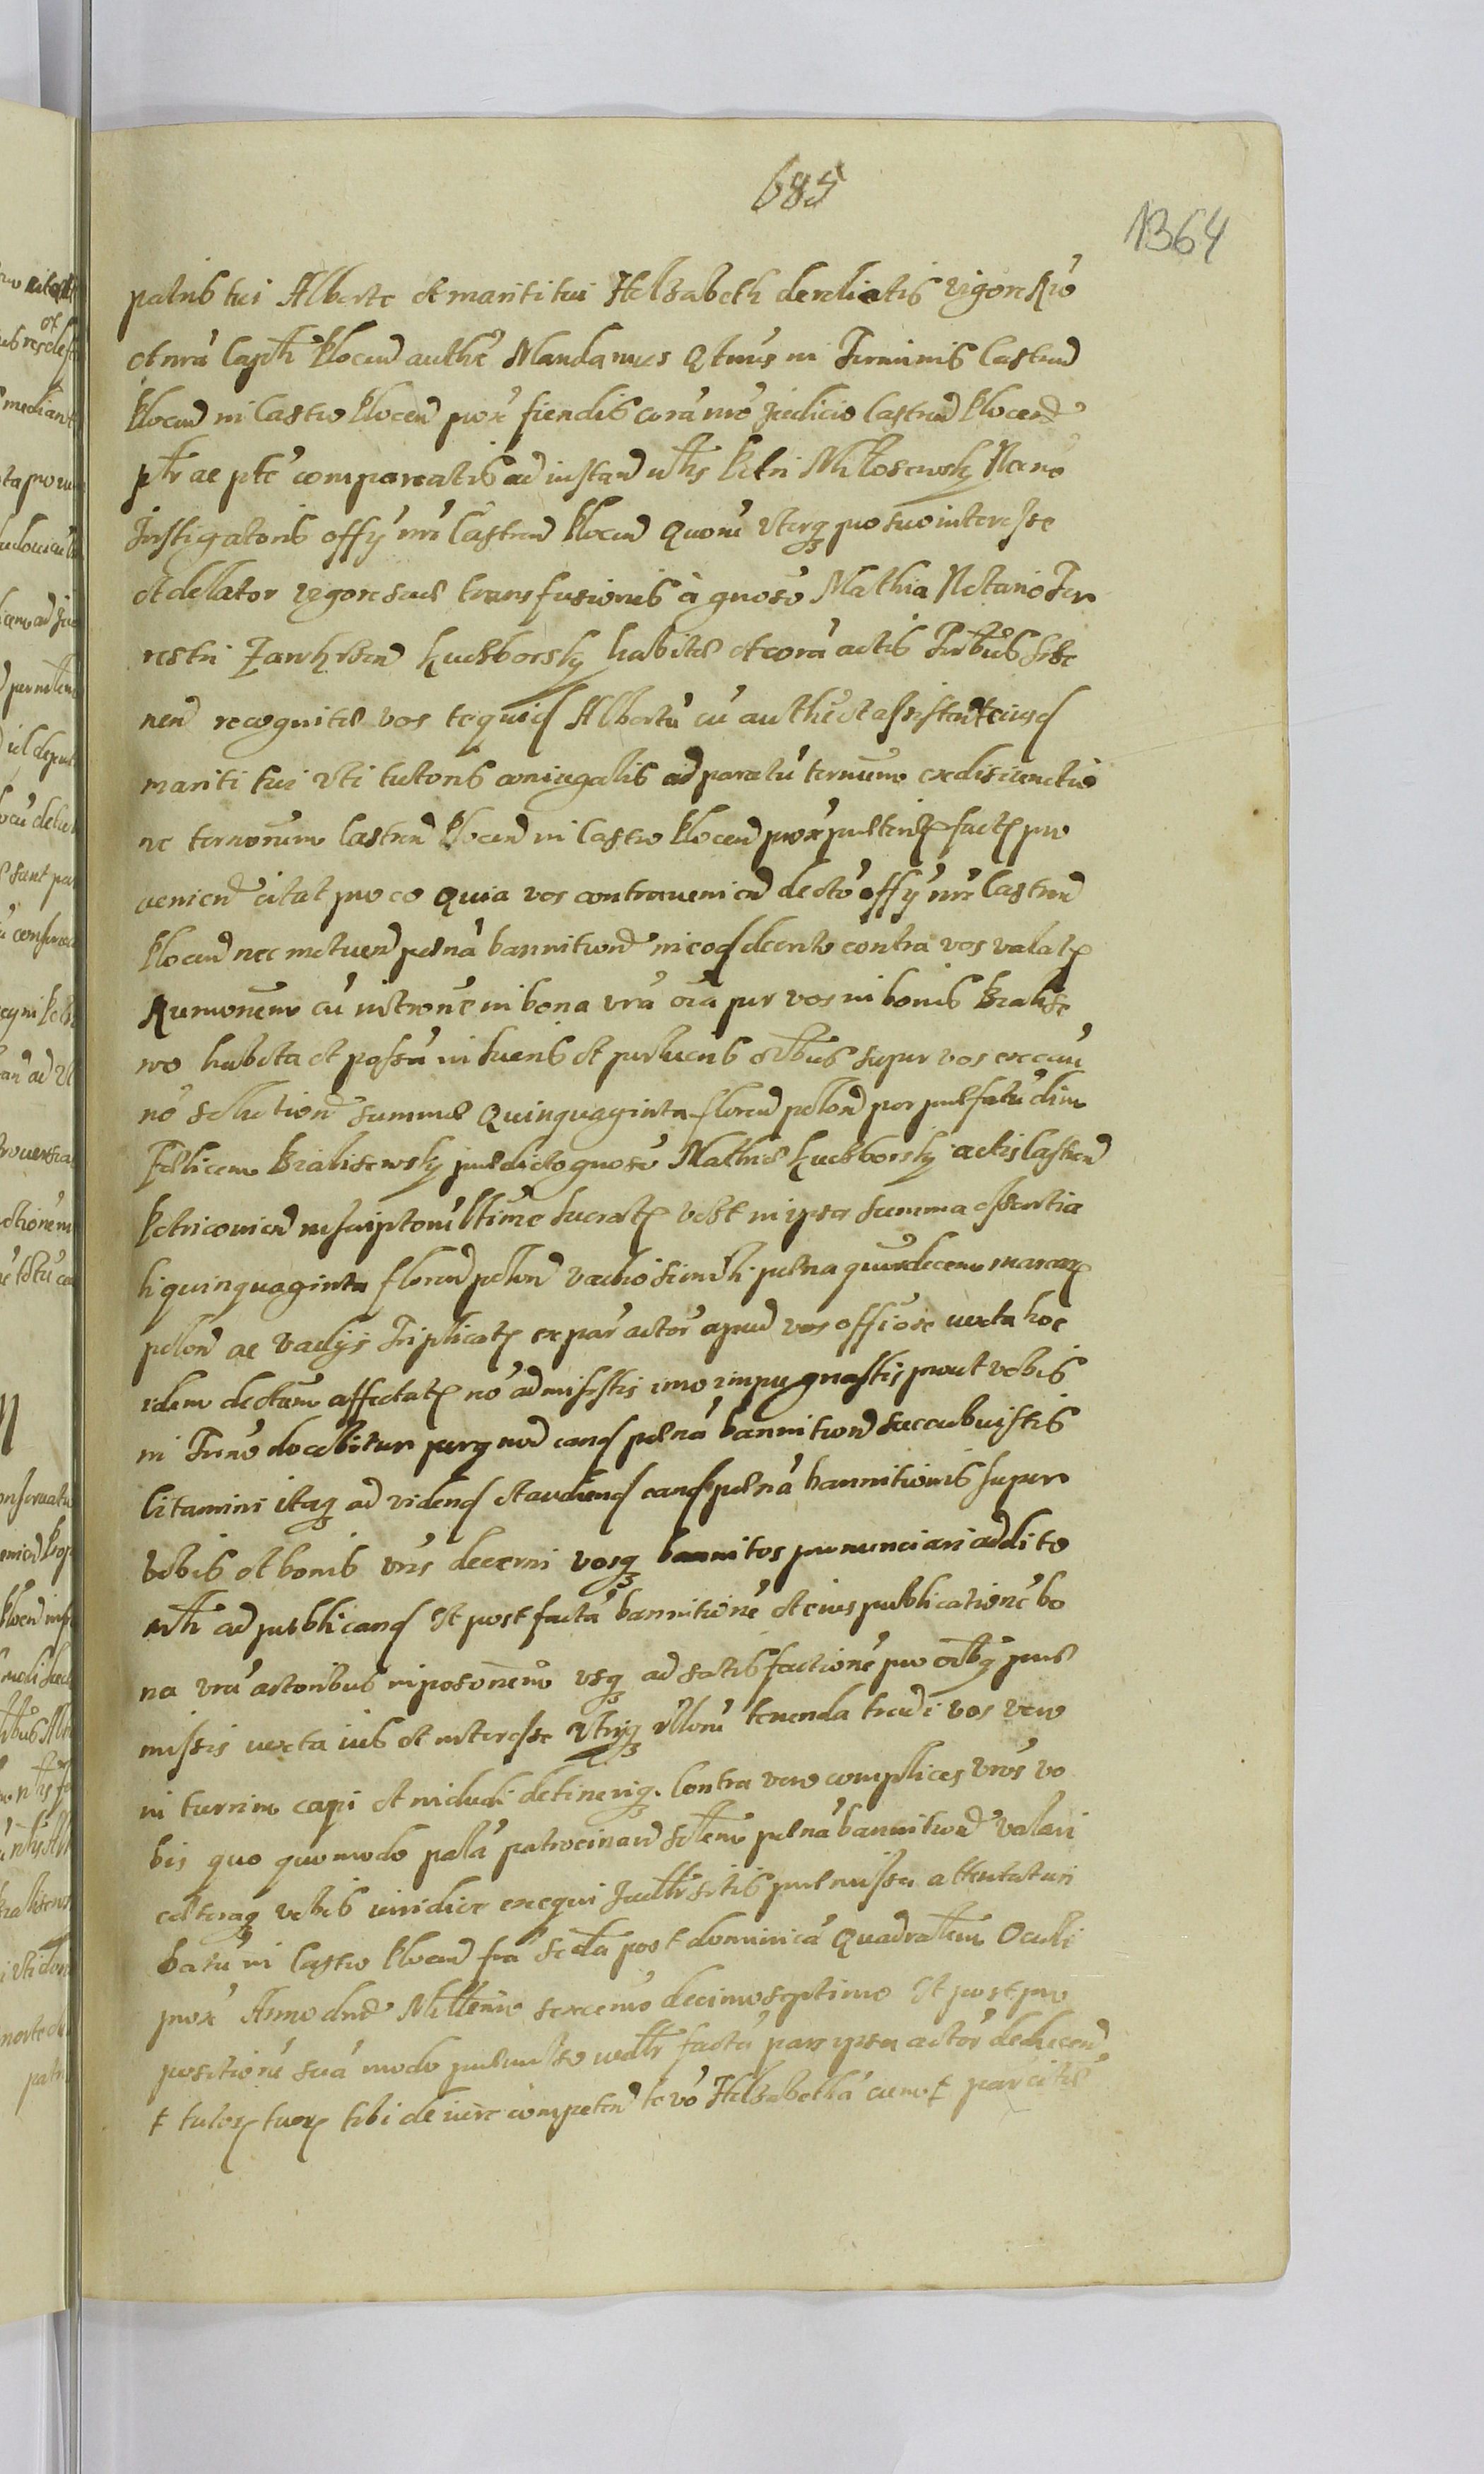 685
1364
patris tui Alberte et mariti tui Helzabeth derelictis vigore Rio
et nrā Capth Plocen authē Mandamus Qtnus in Terminis Castren
Plocen in Castro Plocen prox fiendis corā nrō Judicio Castren Plocen
ptr ac pte compareatis ad instan nths Petri Miłosewsky Necnō
Instigatoris offy nri Castren Plocen Quorū Uterq pro suo interesse
et dellator vigore suae transfusionis à gnoso Mathia Notario Ter
restri Zawhrsen Kuchborsky habitae et corā actis Tribus
nen recognitae vos tequid Albertū cū authē et assisten eiusd
mariti tui Uti tutoris coniugalis ad paratū termnum ex disiunctio
ne termorum Castren Plocen in Castro Plocen prox praeterit fact pro
uenien citat pro eo Quia vos contrauenien decto offy nri Castren
Plocen nec metuen paenā bannition in eod decreto contra vos valat
Rumonem cū intronē in bona vrā oīa per vos in bonis Bialise
wo habita et possū in lucris et perlucris oibus super vos execu
nō solution summae Quinquaginta floren polon per praefatū olim
Felicem Bialisewsky praedicto gnoso Mathiae Kuchborsky actis Castren
Petricouien inscriptorū ultime lucrat Vost in ipsa summa essentia
li quinquaginta floren polon vadio simili paena quindecem marcar
polon ac vadijs Triplicat ex par actor apud vos officiose iuxta hoc
idem dectum affectat nō admisistis imo impugnastis prout vobis
in Trno docebitur perq mod eand paenā bannition succubuistis
Citamini itaq ad videnq et audienq eand paenā bannitionis super
Vobis et bonis vris decerni vosq bannitos pronunciari addi te
mth ad publicand Et post factā bannitionē et eius publicationē bo
na vrā actoribus in possonem vsq ad satisfactionē pro oibq prae
missis iuxta ius et interesse Utriq illorū tenenda tradi vos vero
in turrim capi et includi detineriq. Contra vero complices vros vo
bis quo quomodo palā patrocinan paenā bannition valari
caeteraq vobis iuridice exequi Judltr sitis praemissa attentaturi
Datū in Castro Plocen fra scda post dominicā Quadraltem Oculi
prox Anno dni Millemo sexcemo decimo septimo Et post pro
positionē suā modo praemisso iudltr factā pars ipsa actor deducen
t tutor tuor tibi de iure competen te vō Helzabethā cum t par citae